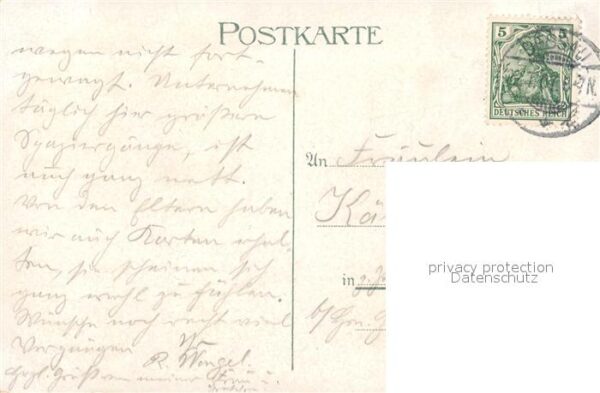 POSTKARTE
wegen nicht fort-
gewagt. Unternehmen
täglich hier größere
Spaziergänge, ist
auch ganz nett.
Von den Eltern haben
wir auch Karten erhal-
ten, sie scheinen sich
ganz wohl zu fühlen.
Wünsche noch recht viel
Vergnügen
R. Wengel.
Hrzl. Grüße von meiner Frau u.
5 5
DESSAU
DEUTSCHES REICH
An Fräulein
Kä
in
privacy protection
Datenschutz